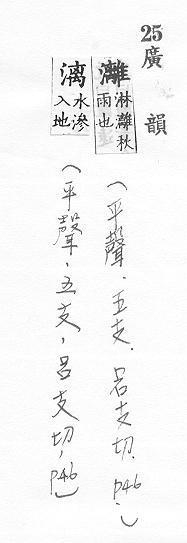 25 廣韻
灕 淋灕秋雨也
(平聲.五支.呂支切.P46.)
漓 水滲入地
(平聲,五支,呂支切,P46)